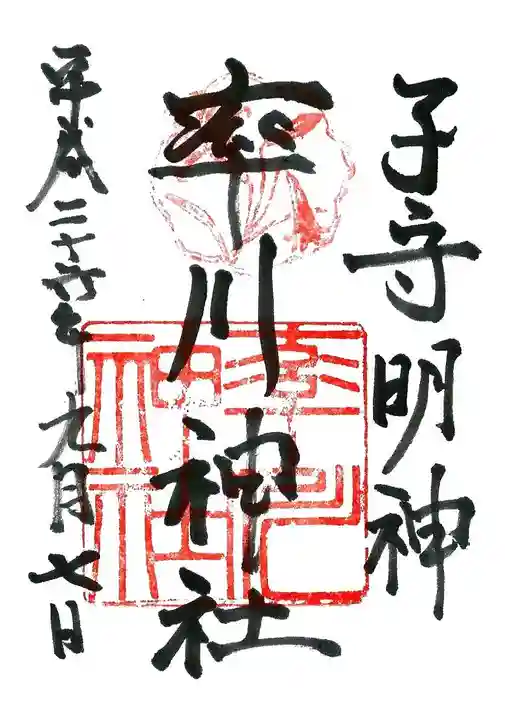 子守明神
率川神社
平成二十六年九月七日
率川神社